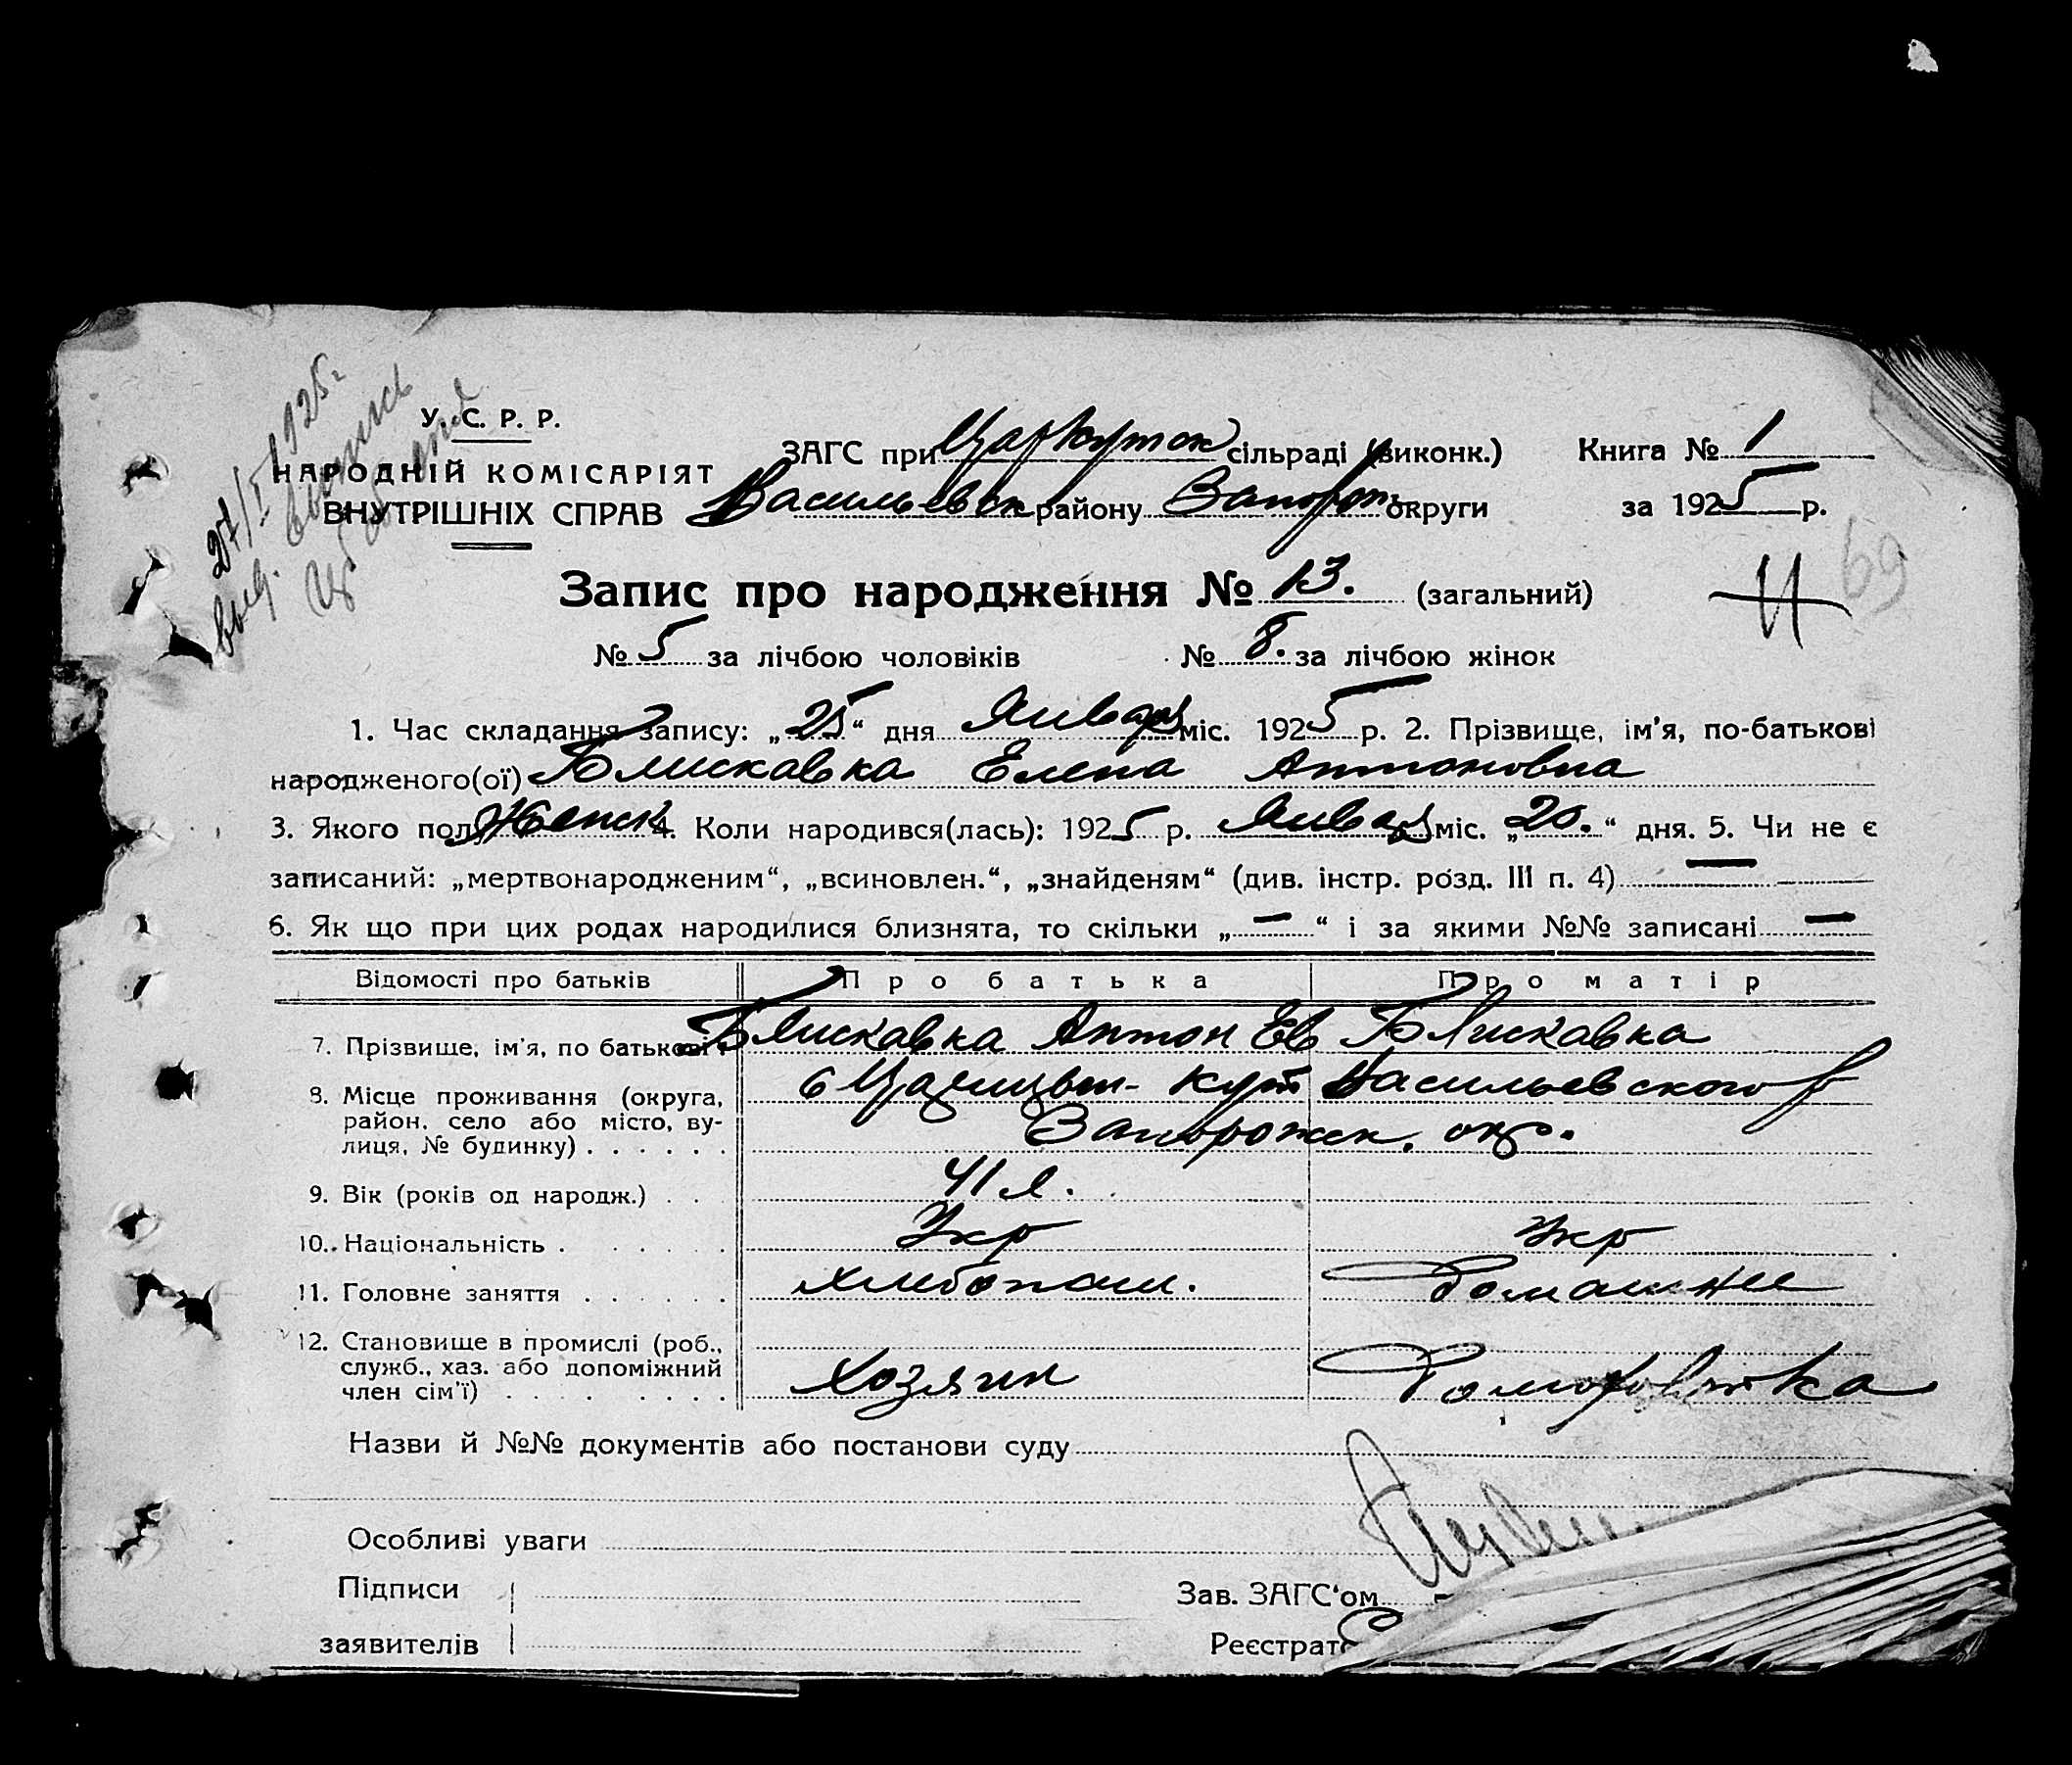 27/I 1925 г.
выд. выпись
У. С. Р. Р.
НАРОДНІЙ КОМІСАРІЯТ
ВНУТРІШНІХ СПРАВ
ЗАГС при Царкуток сільраді (виконк.) Книга № 1
Васильевск району Запорож округи за 1925 р.
Запис про народження № 13. (загальний)
И 69
№ 5 за лічбою чоловіків № 8. за лічбою жінок
1. Час складання запису: „25“ дня Января міс. 1925 р. 2. Прізвище, ім'я, по-батькові
народженого(ої) Блискавка Елена Антоновна
3. Якого полу Женск. 4. Коли народився(лась): 1925 р. Января міс. „20.“ дня. 5. Чи не є
записаний: „мертвонародженим“, „всиновлен.“, „знайденям“ (див. інстр. розд. III п. 4) —
6. Як що при цих родах народилися близнята, то скільки „—“ і за якими №№ записані —
Відомості про батьків Про батька Про матір
7. Прізвище, ім'я, по батькові Блискавка Антон Ев Блискавка
8. Місце проживання (округа, район, село або місто, вулиця, № будинку) . . . . . . с Царицын-Кут Васильевского р
Запорожск. окр.
9. Вік (років од народж.) . . . 41 л.
10. Національність . . . . . . Укр Укр
11. Головне заняття . . . . . . хлебопаш. Домашнее
12. Становище в промислі (роб., служб., хаз. або допоміжний член сім'ї) . . . . . . Хозяин Домохозяйка
Назви й №№ документів або постанови суду
Особливі уваги
Підписи
заявителів
Зав. ЗАГС'ом
Реєстрат